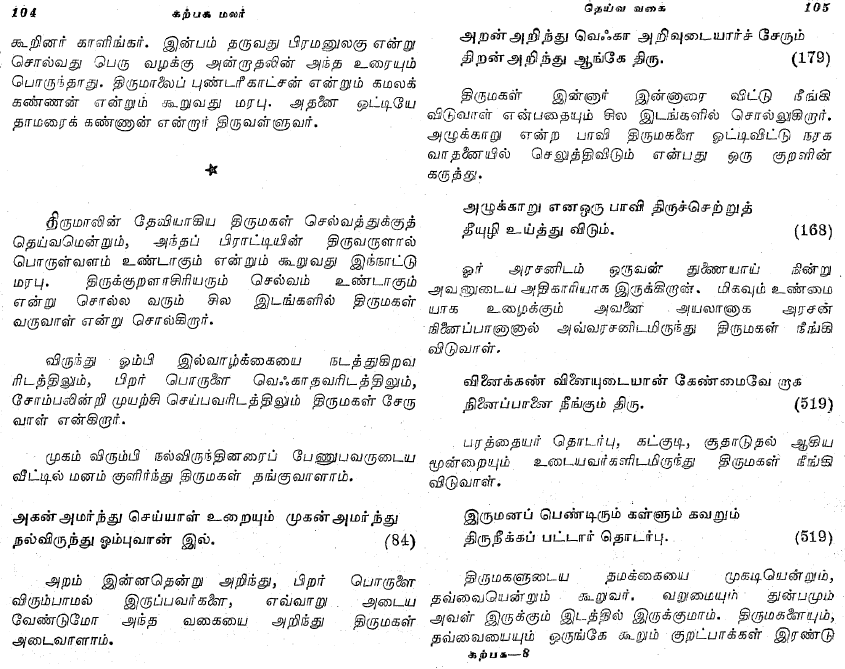 104 கற்பக மலர்
கூறினர் காளிங்கர். இன்பம் தருவது பிரமனுலகு என்று
சொல்வது பெரு வழக்கு அன்றாதலின் அந்த உரையும்
பொருந்தாது. திருமாலைப் புண்டரீகாட்சன் என்றும் கமலக்
கண்ணன் என்றும் கூறுவது மரபு. அதனை ஒட்டியே
தாமரைக் கண்ணான் என்றார் திருவள்ளுவர்.
★
திருமாலின் தேவியாகிய திருமகள் செல்வத்துக்குத்
தெய்வமென்றும், அந்தப் பிராட்டியின் திருவருளால்
பொருள்வளம் உண்டாகும் என்றும் கூறுவது இந்நாட்டு
மரபு. திருக்குறளாசிரியரும் செல்வம் உண்டாகும்
என்று சொல்ல வரும் சில இடங்களில் திருமகள்
வருவாள் என்று சொல்கிறார்.
விருந்து ஓம்பி இல்வாழ்க்கையை நடத்துகிறவ
ரிடத்திலும், பிறர் பொருளை வெஃகாதவரிடத்திலும்,
சோம்பலின்றி முயற்சி செய்பவரிடத்திலும் திருமகள் சேரு
வாள் என்கிறார்.
முகம் விரும்பி நல்விருந்தினரைப் பேணுபவருடைய
வீட்டில் மனம் குளிர்ந்து திருமகள் தங்குவாளாம்.
அகன்அமர்ந்து செய்யாள் உறையும் முகன்அமர்ந்து
நல்விருந்து ஓம்புவான் இல். (84)
அறம் இன்னதென்று அறிந்து, பிறர் பொருளை
விரும்பாமல் இருப்பவர்களை, எவ்வாறு அடைய
வேண்டுமோ அந்த வகையை அறிந்து திருமகள்
அடைவாளாம்.
தெய்வ வகை 105
அறன்அறிந்து வெஃகா அறிவுடையார்ச் சேரும்
திறன்அறிந்து ஆங்கே திரு. (179)
திருமகள் இன்னார் இன்னாரை விட்டு நீங்கி
விடுவாள் என்பதையும் சில இடங்களில் சொல்லுகிறார்.
அழுக்காறு என்ற பாவி திருமகளை ஓட்டிவிட்டு நரக
வாதனையில் செலுத்திவிடும் என்பது ஒரு குறளின்
கருத்து.
அழுக்காறு எனஒரு பாவி திருச்செற்றுத்
தீயுழி உய்த்து விடும். (168)
ஓர் அரசனிடம் ஒருவன் துணையாய் நின்று
அவனுடைய அதிகாரியாக இருக்கிறான். மிகவும் உண்மை
யாக உழைக்கும் அவனை அயலானாக அரசன்
நினைப்பானானால் அவ்வரசனிடமிருந்து திருமகள் நீங்கி
விடுவாள்.
வினைக்கண் வினையுடையான் கேண்மைவே றாக
நினைப்பானை நீங்கும் திரு. (519)
பரத்தையர் தொடர்பு, கட்குடி, சூதாடுதல் ஆகிய
மூன்றையும் உடையவர்களிடமிருந்து திருமகள் நீங்கி
விடுவாள்.
இருமனப் பெண்டிரும் கள்ளும் கவறும்
திருநீக்கப் பட்டார் தொடர்பு. (519)
திருமகளுடைய தமக்கையை முகடியென்றும்,
தவ்வையென்றும் கூறுவர். வறுமையும் துன்பமும்
அவள் இருக்கும் இடத்தில் இருக்குமாம். திருமகளையும்,
தவ்வையையும் ஒருங்கே கூறும் குறட்பாக்கள் இரண்டு
கற்பக—8